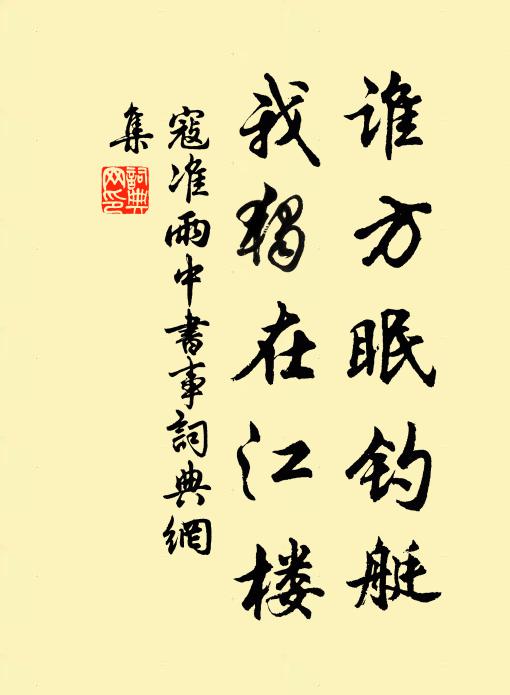 谁方眠钓艇
我独在江楼
寇准雨中书事词典网
集
词典网印